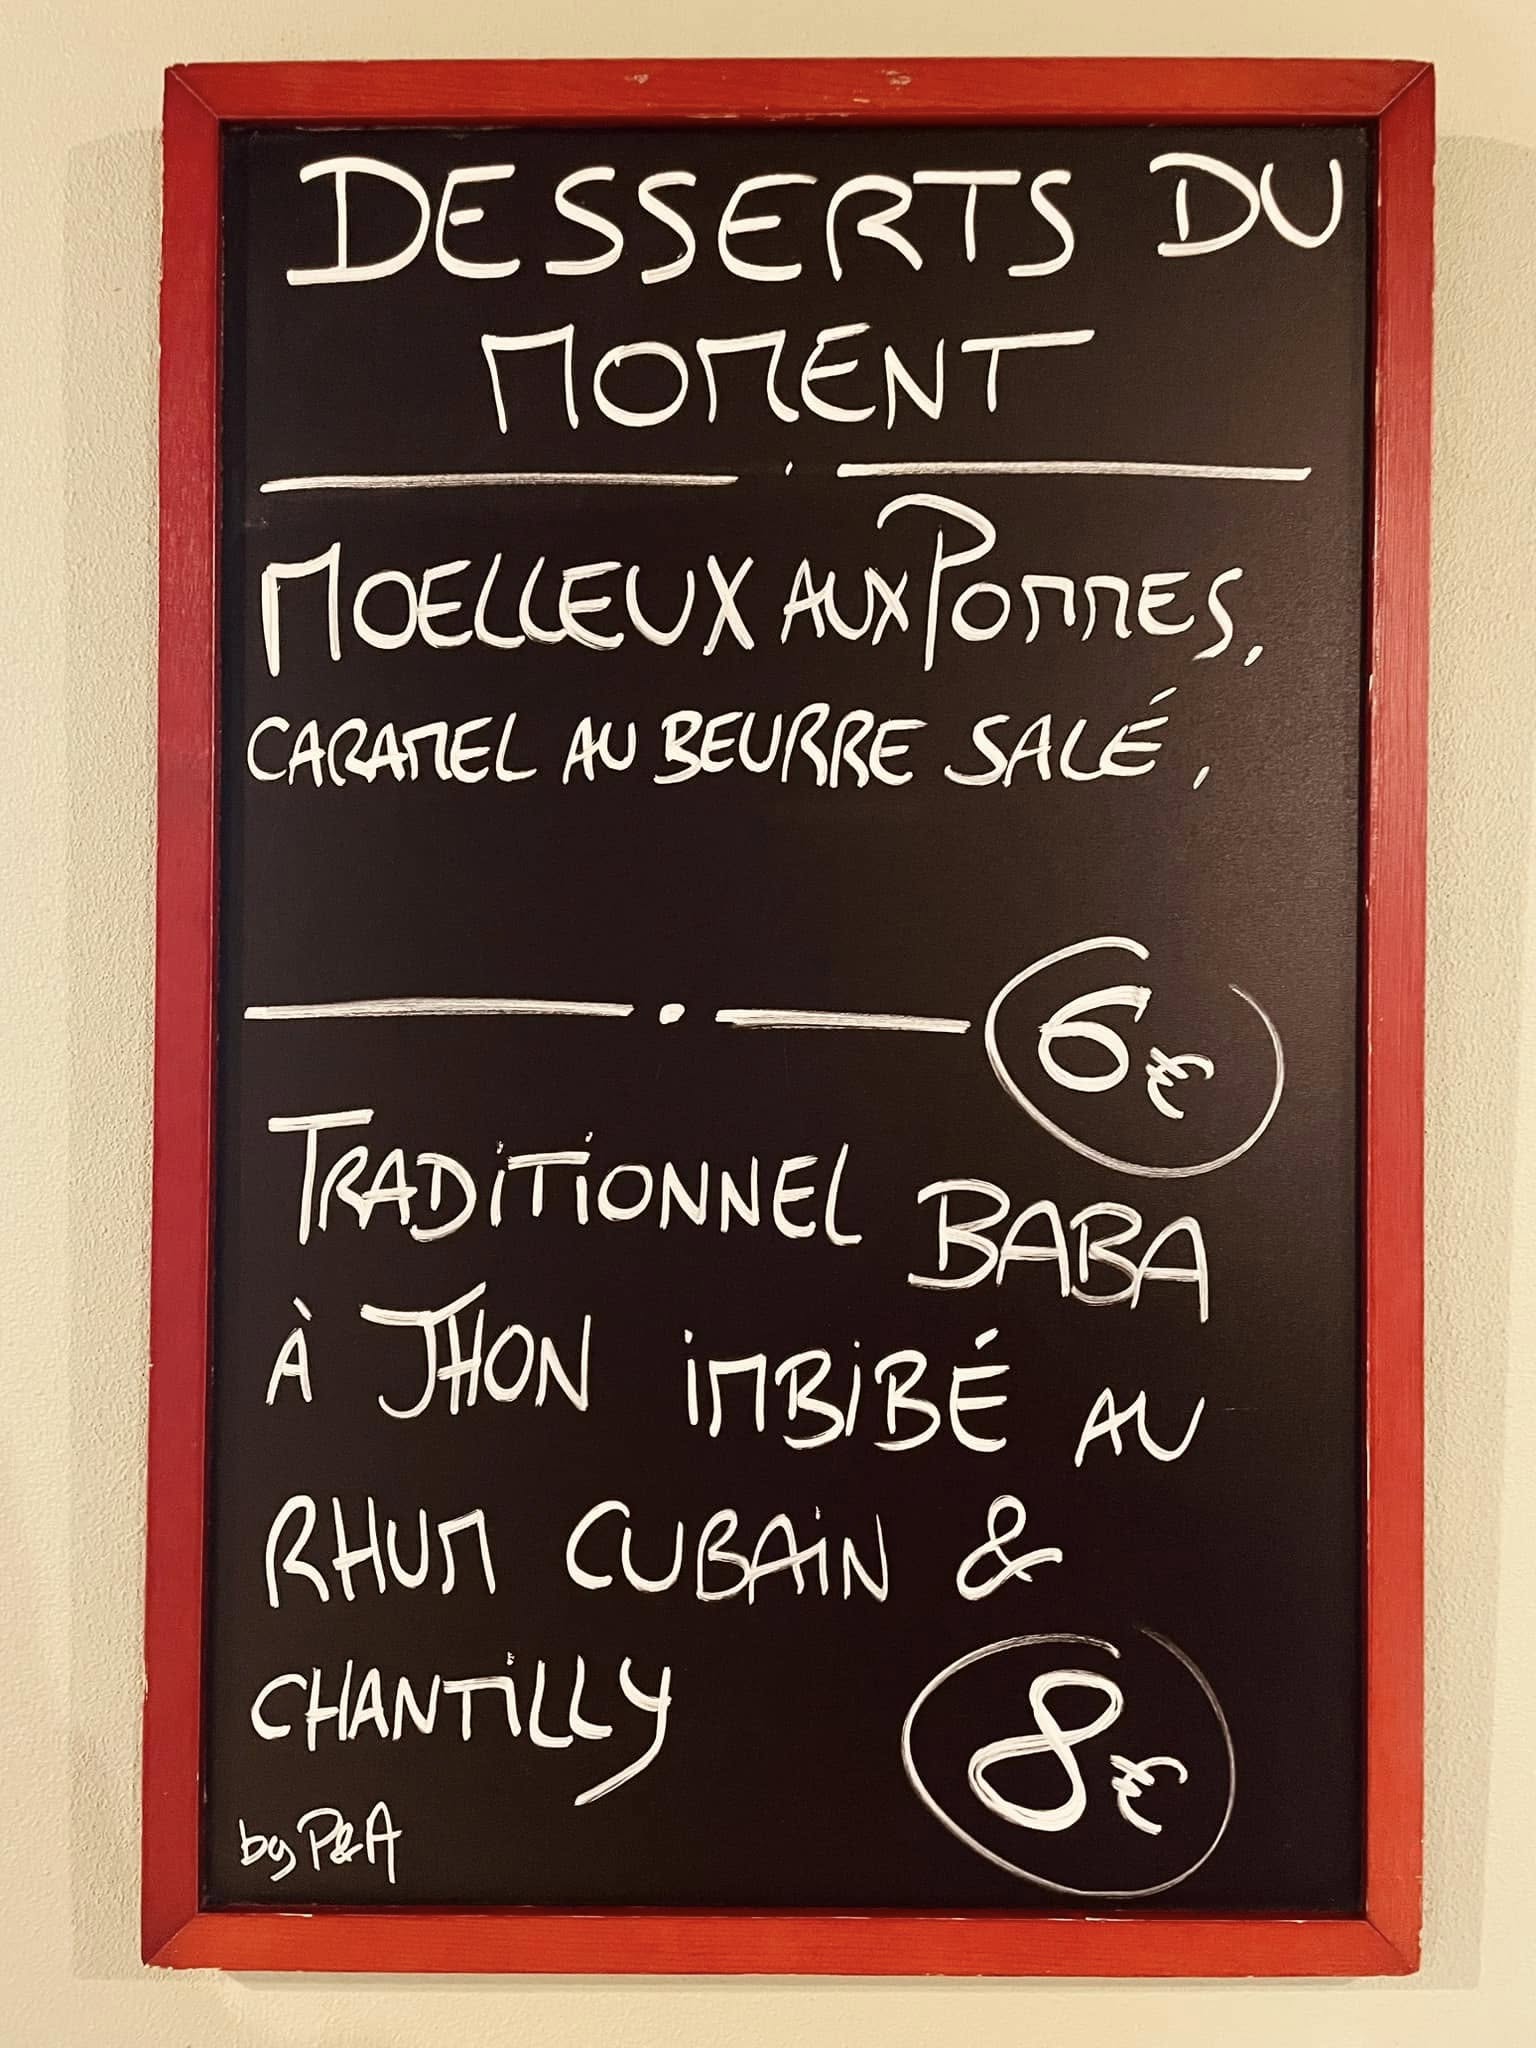 DESSERTS DU
MOMENT
MOELLEUX AUX POMMES,
CARAMEL AU BEURRE SALÉ,
6€
TRADITIONNEL BABA
À JHON IMBIBÉ AU
RHUM CUBAIN &
CHANTILLY
8€
by P&A